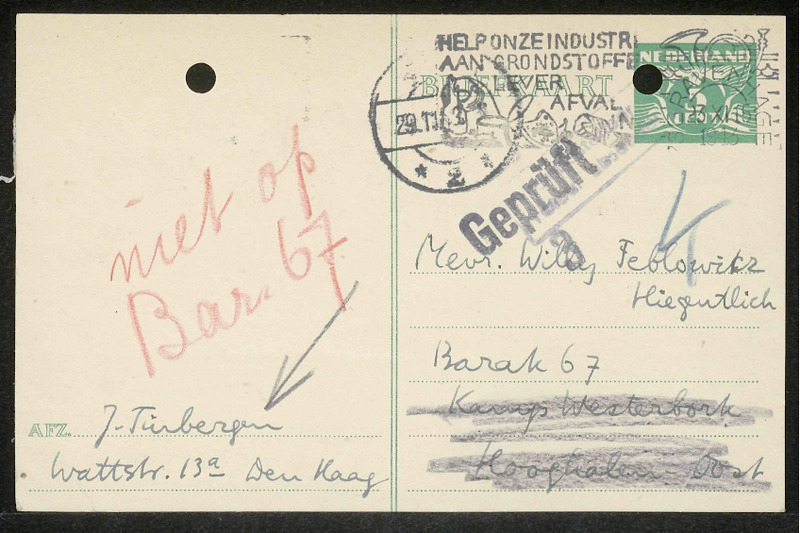 HELP ONZE INDUSTRI
AAN GRONDSTOFFE
LEVER
AFVAL
IN
NEDERLAND
CENT
BRIEFKAART
'S GRAVENHAGE
XI
29.11
2
Geprüft
niet op
Bar. 67
Mevr. Willy Feblowicz
Hiegentlich
Barak 67
Kamp Westerbork
Hooghalen Oost
AFZ. J. Tinbergen
Wattstr. 13a Den Haag